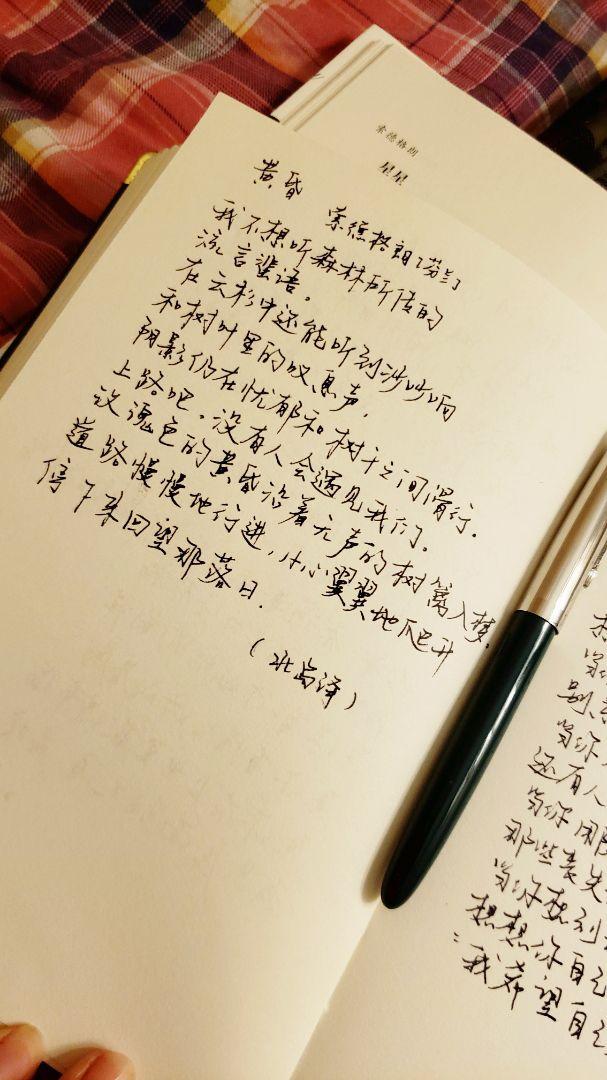 索德格朗
星星
黄昏 索德格朗(芬兰)
我不想听森林所传的
流言蜚语。
在云杉中还能听到沙沙响
和树叶里的叹息声,
阴影仍在忧郁和树干之间滑行.
上路吧。没有人会遇见我们.
玫瑰色的黄昏沿着无声的树篱入梦.
道路慢慢地行进,小小翼翼地爬升
停下来回望那落日.
(北岛译)
当你
当你
还有人
当你
那些丧失
当你想到
想想你自己
我希望自己